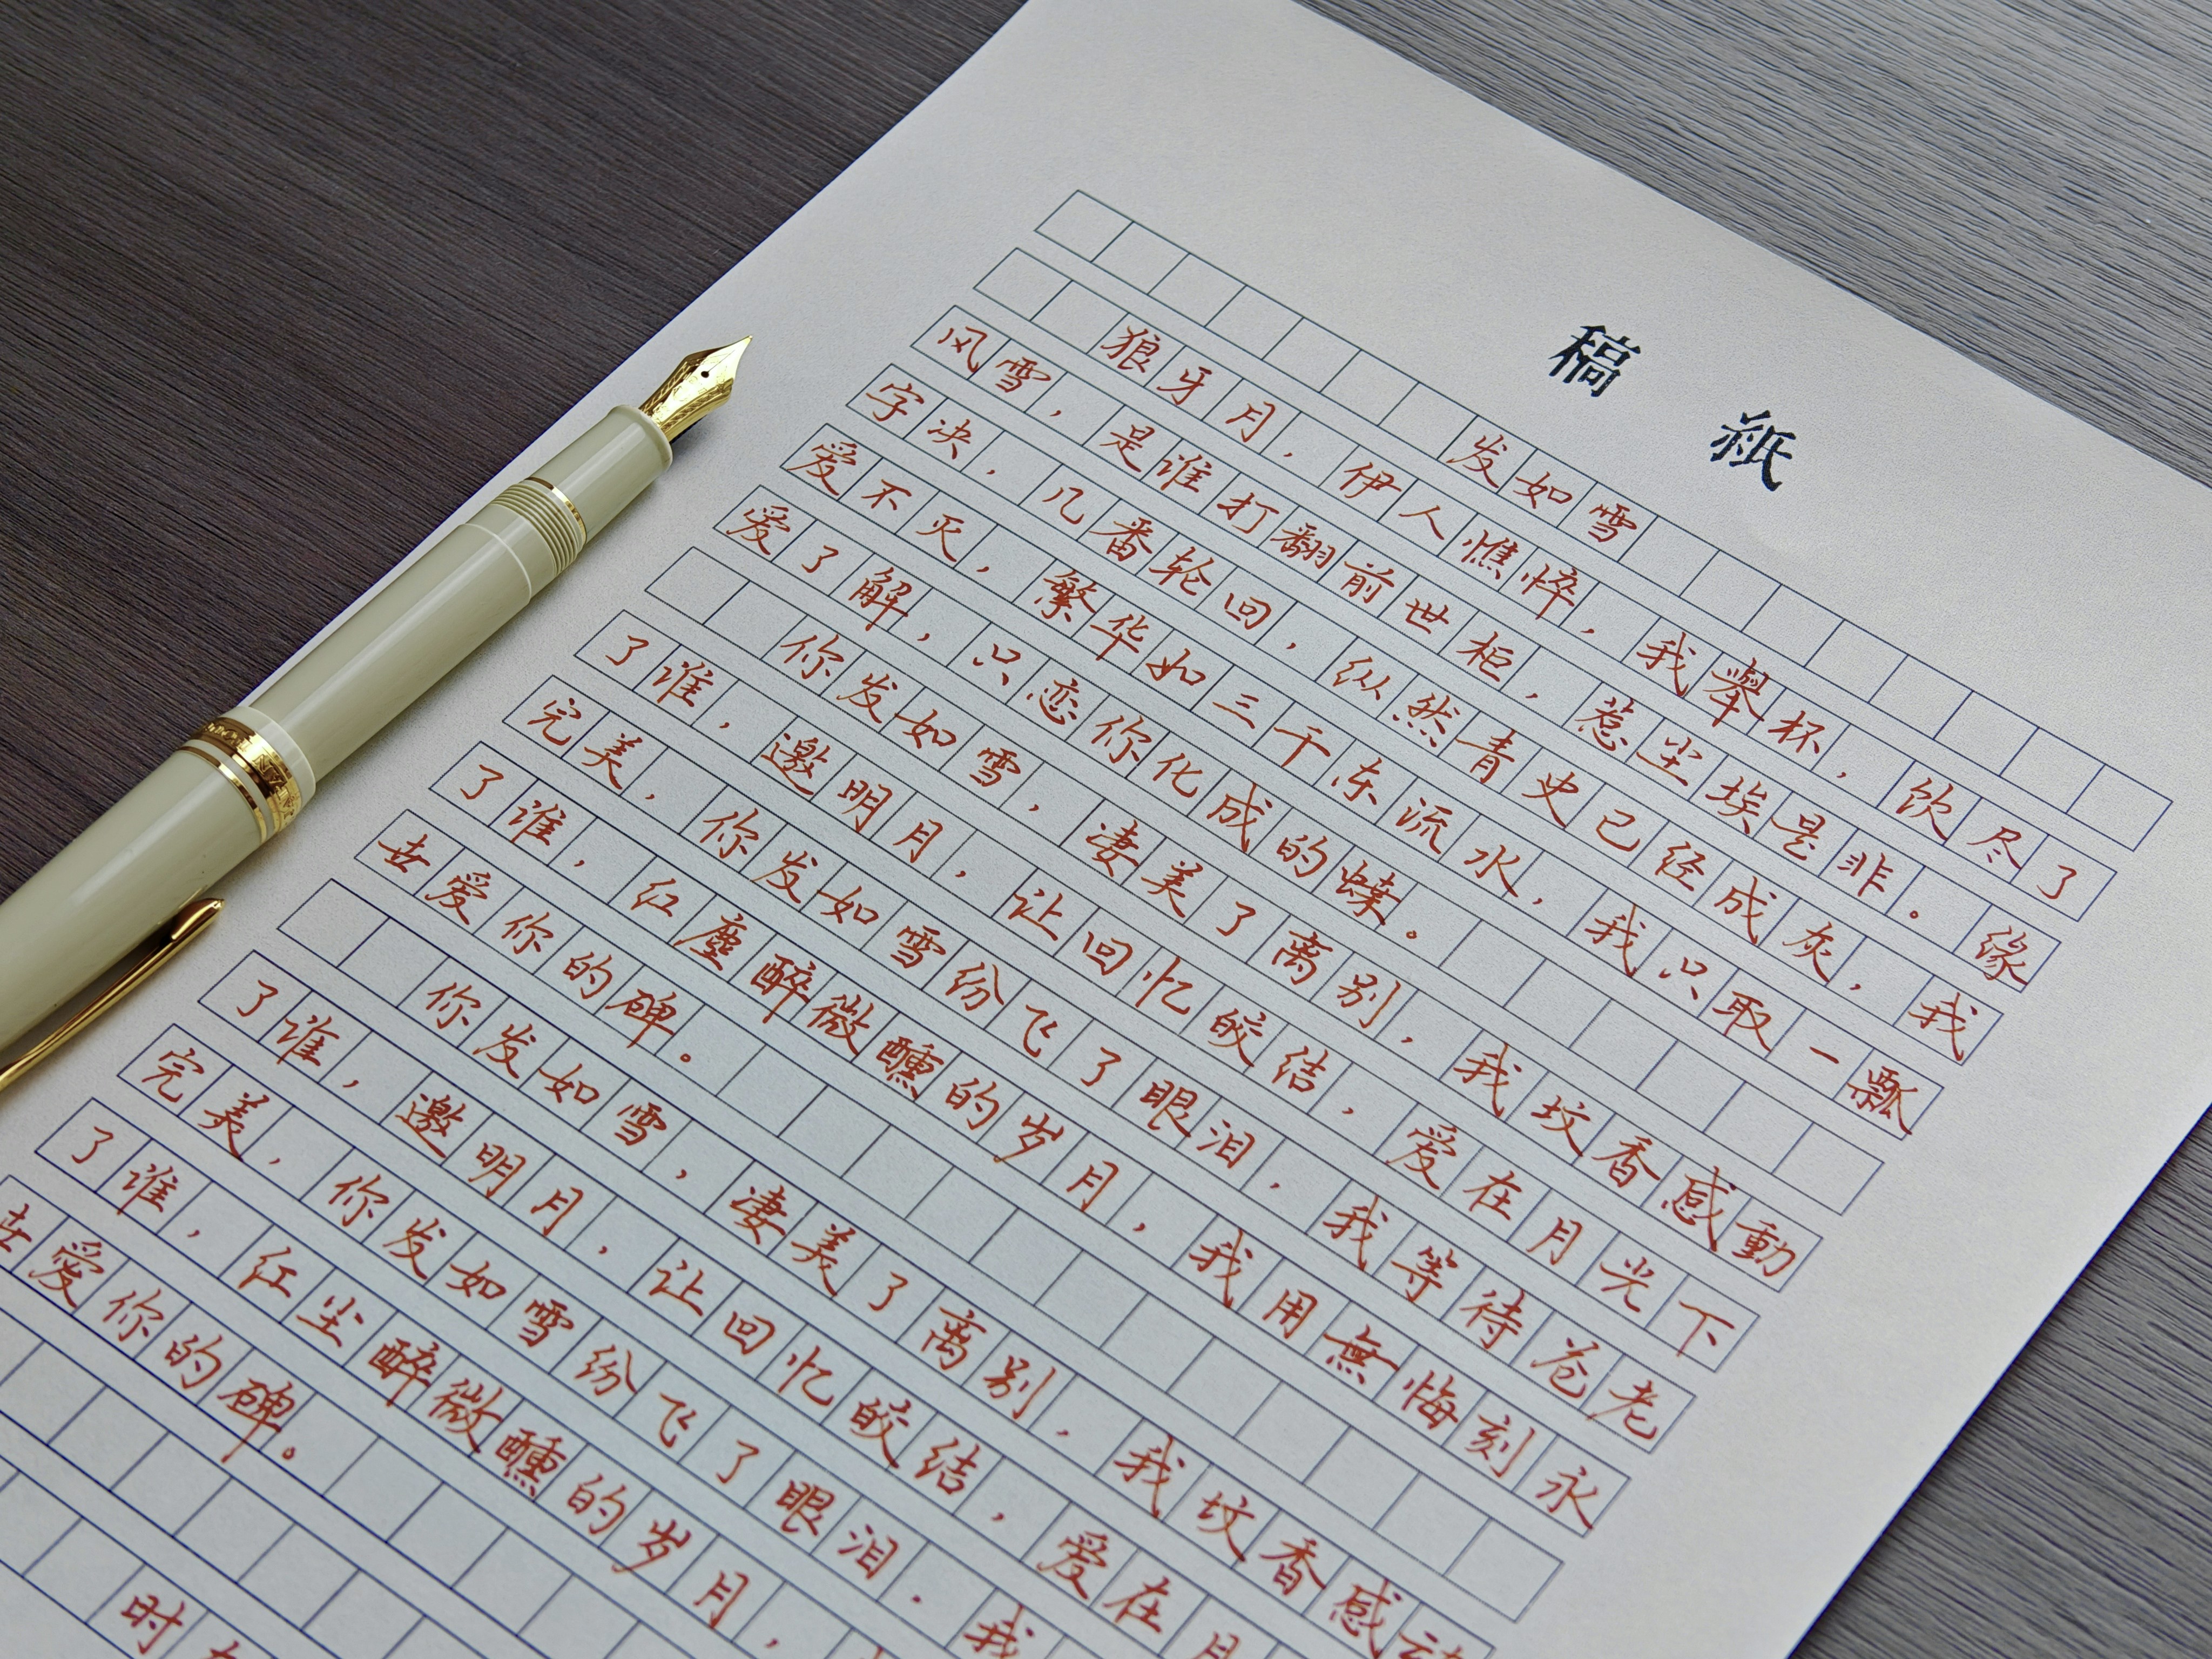 稿紙
发如雪
狼牙月,伊人憔悴,我舉杯,饮尽了
风雪,是谁打翻前世柜,惹尘埃是非。缘
字决,几番轮回,纵然青史已经成灰,我
爱不灭,繁华如三千东流水,我只取一瓢
爱了解,只恋你化成的蝶。
你发如雪,凄美了离别,我坟香感動
了谁,邀明月,让回忆皎结,爱在月光下
完美,你发如雪纷飞了眼泪,我等待苍老
了谁,红塵醉微醺的岁月,我用無悔刻永
世爱你的碑。
你发如雪,凄美了离别,我坟香感动
了谁,邀明月,让回忆皎结,爱在月
完美,你发如雪纷飞了眼泪.我
了谁,红尘醉微醺的岁月,
世愛你的碑。
时